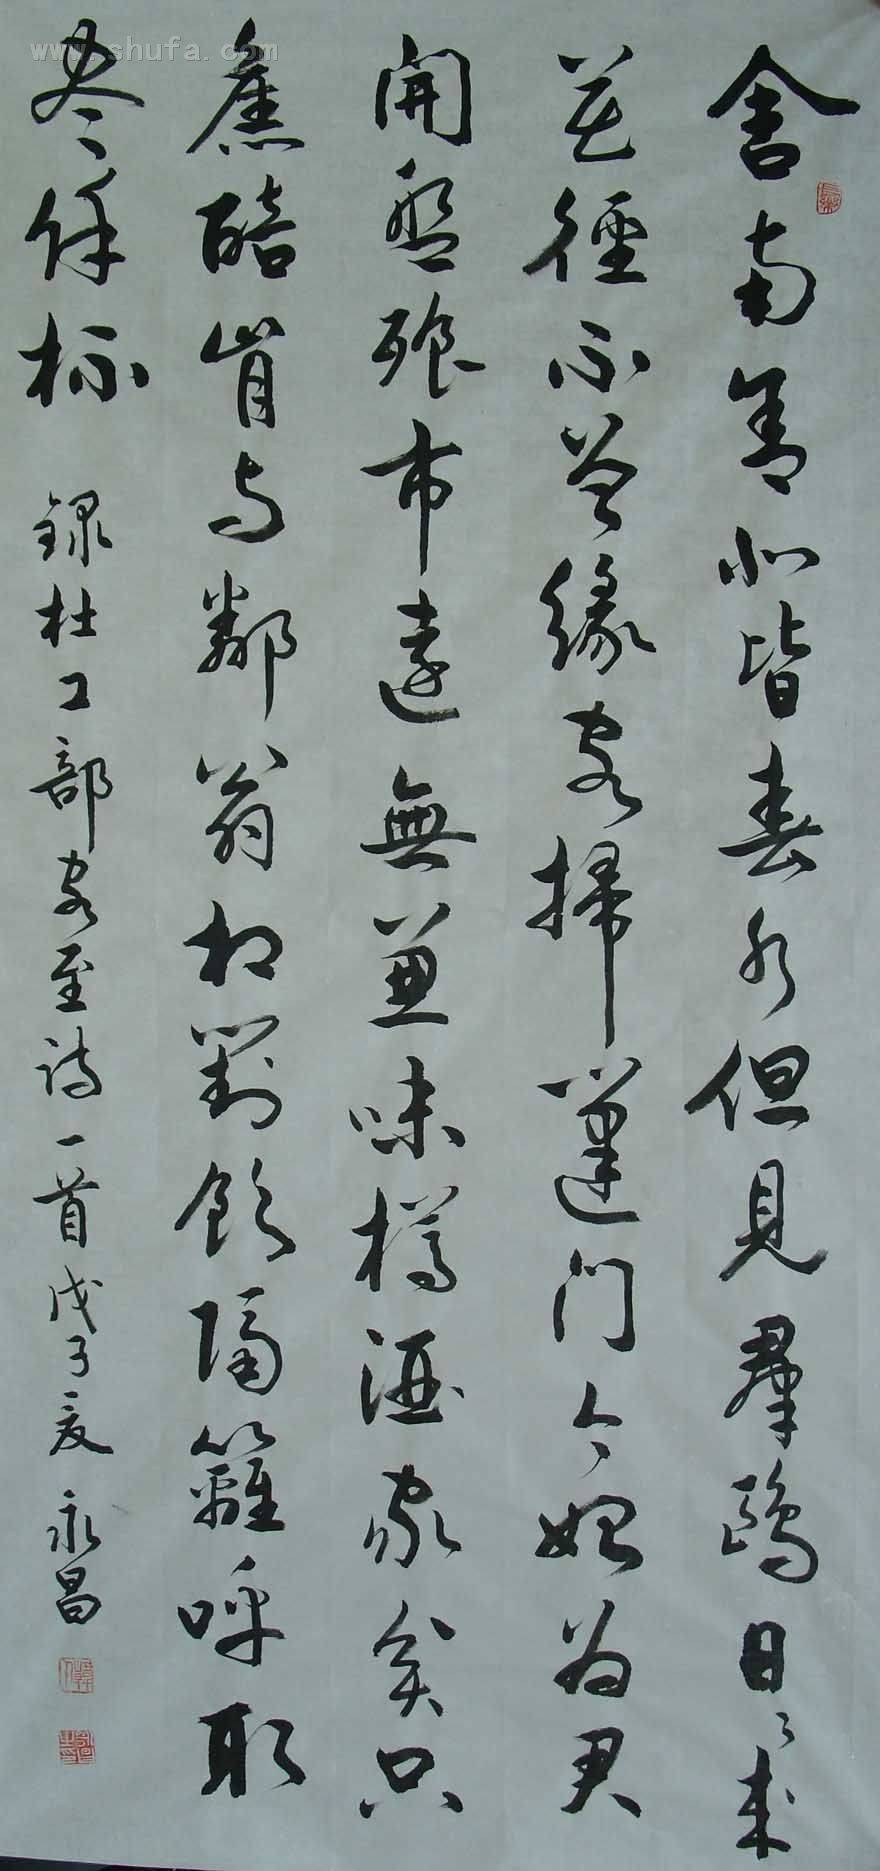 www.shufa.com
舍南舍北皆春水但見羣鷗日々来
花徑不曾緣客掃蓬門今始为君
開盤飧市遠無兼味樽酒家貧只
舊醅肯与鄰翁相對飲隔籬呼取
尽餘杯 録杜工部客至诗一首戊子夏 永昌